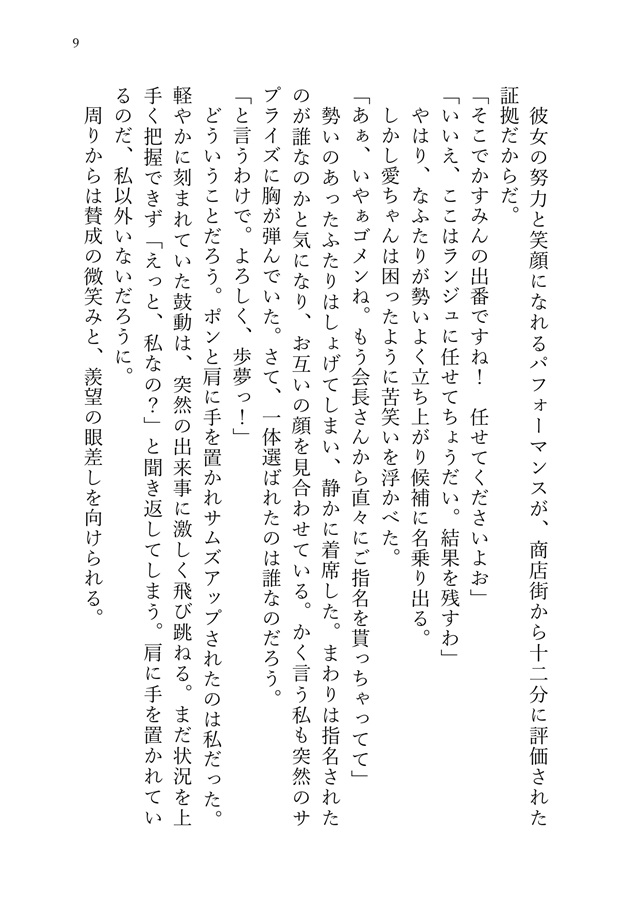 9
　彼女の努力と笑顔になれるパフォーマンスが、商店街から十二分に評価された
証拠だからだ。
「そこでかすみんの出番ですね！　任せてくださいよお」
「いいえ、ここはランジュに任せてちょうだい。結果を残すわ」
　やはり、なふたりが勢いよく立ち上がり候補に名乗り出る。
　しかし愛ちゃんは困ったように苦笑いを浮かべた。
「あぁ、いやぁゴメンね。もう会長さんから直々にご指名を貰っちゃってて」
　勢いのあったふたりはしょげてしまい、静かに着席した。まわりは指名された
のが誰なのかと気になり、お互いの顔を見合わせている。かく言う私も突然のサ
プライズに胸が弾んでいた。さて、一体選ばれたのは誰なのだろう。
「と言うわけで。よろしく、歩夢っ！」
　どういうことだろう。ポンと肩に手を置かれサムズアップされたのは私だった。
軽やかに刻まれていた鼓動は、突然の出来事に激しく飛び跳ねる。まだ状況を上
手く把握できず「えっと、私なの？」と聞き返してしまう。肩に手を置かれてい
るのだ、私以外いないだろうに。
　周りからは賛成の微笑みと、羨望の眼差しを向けられる。